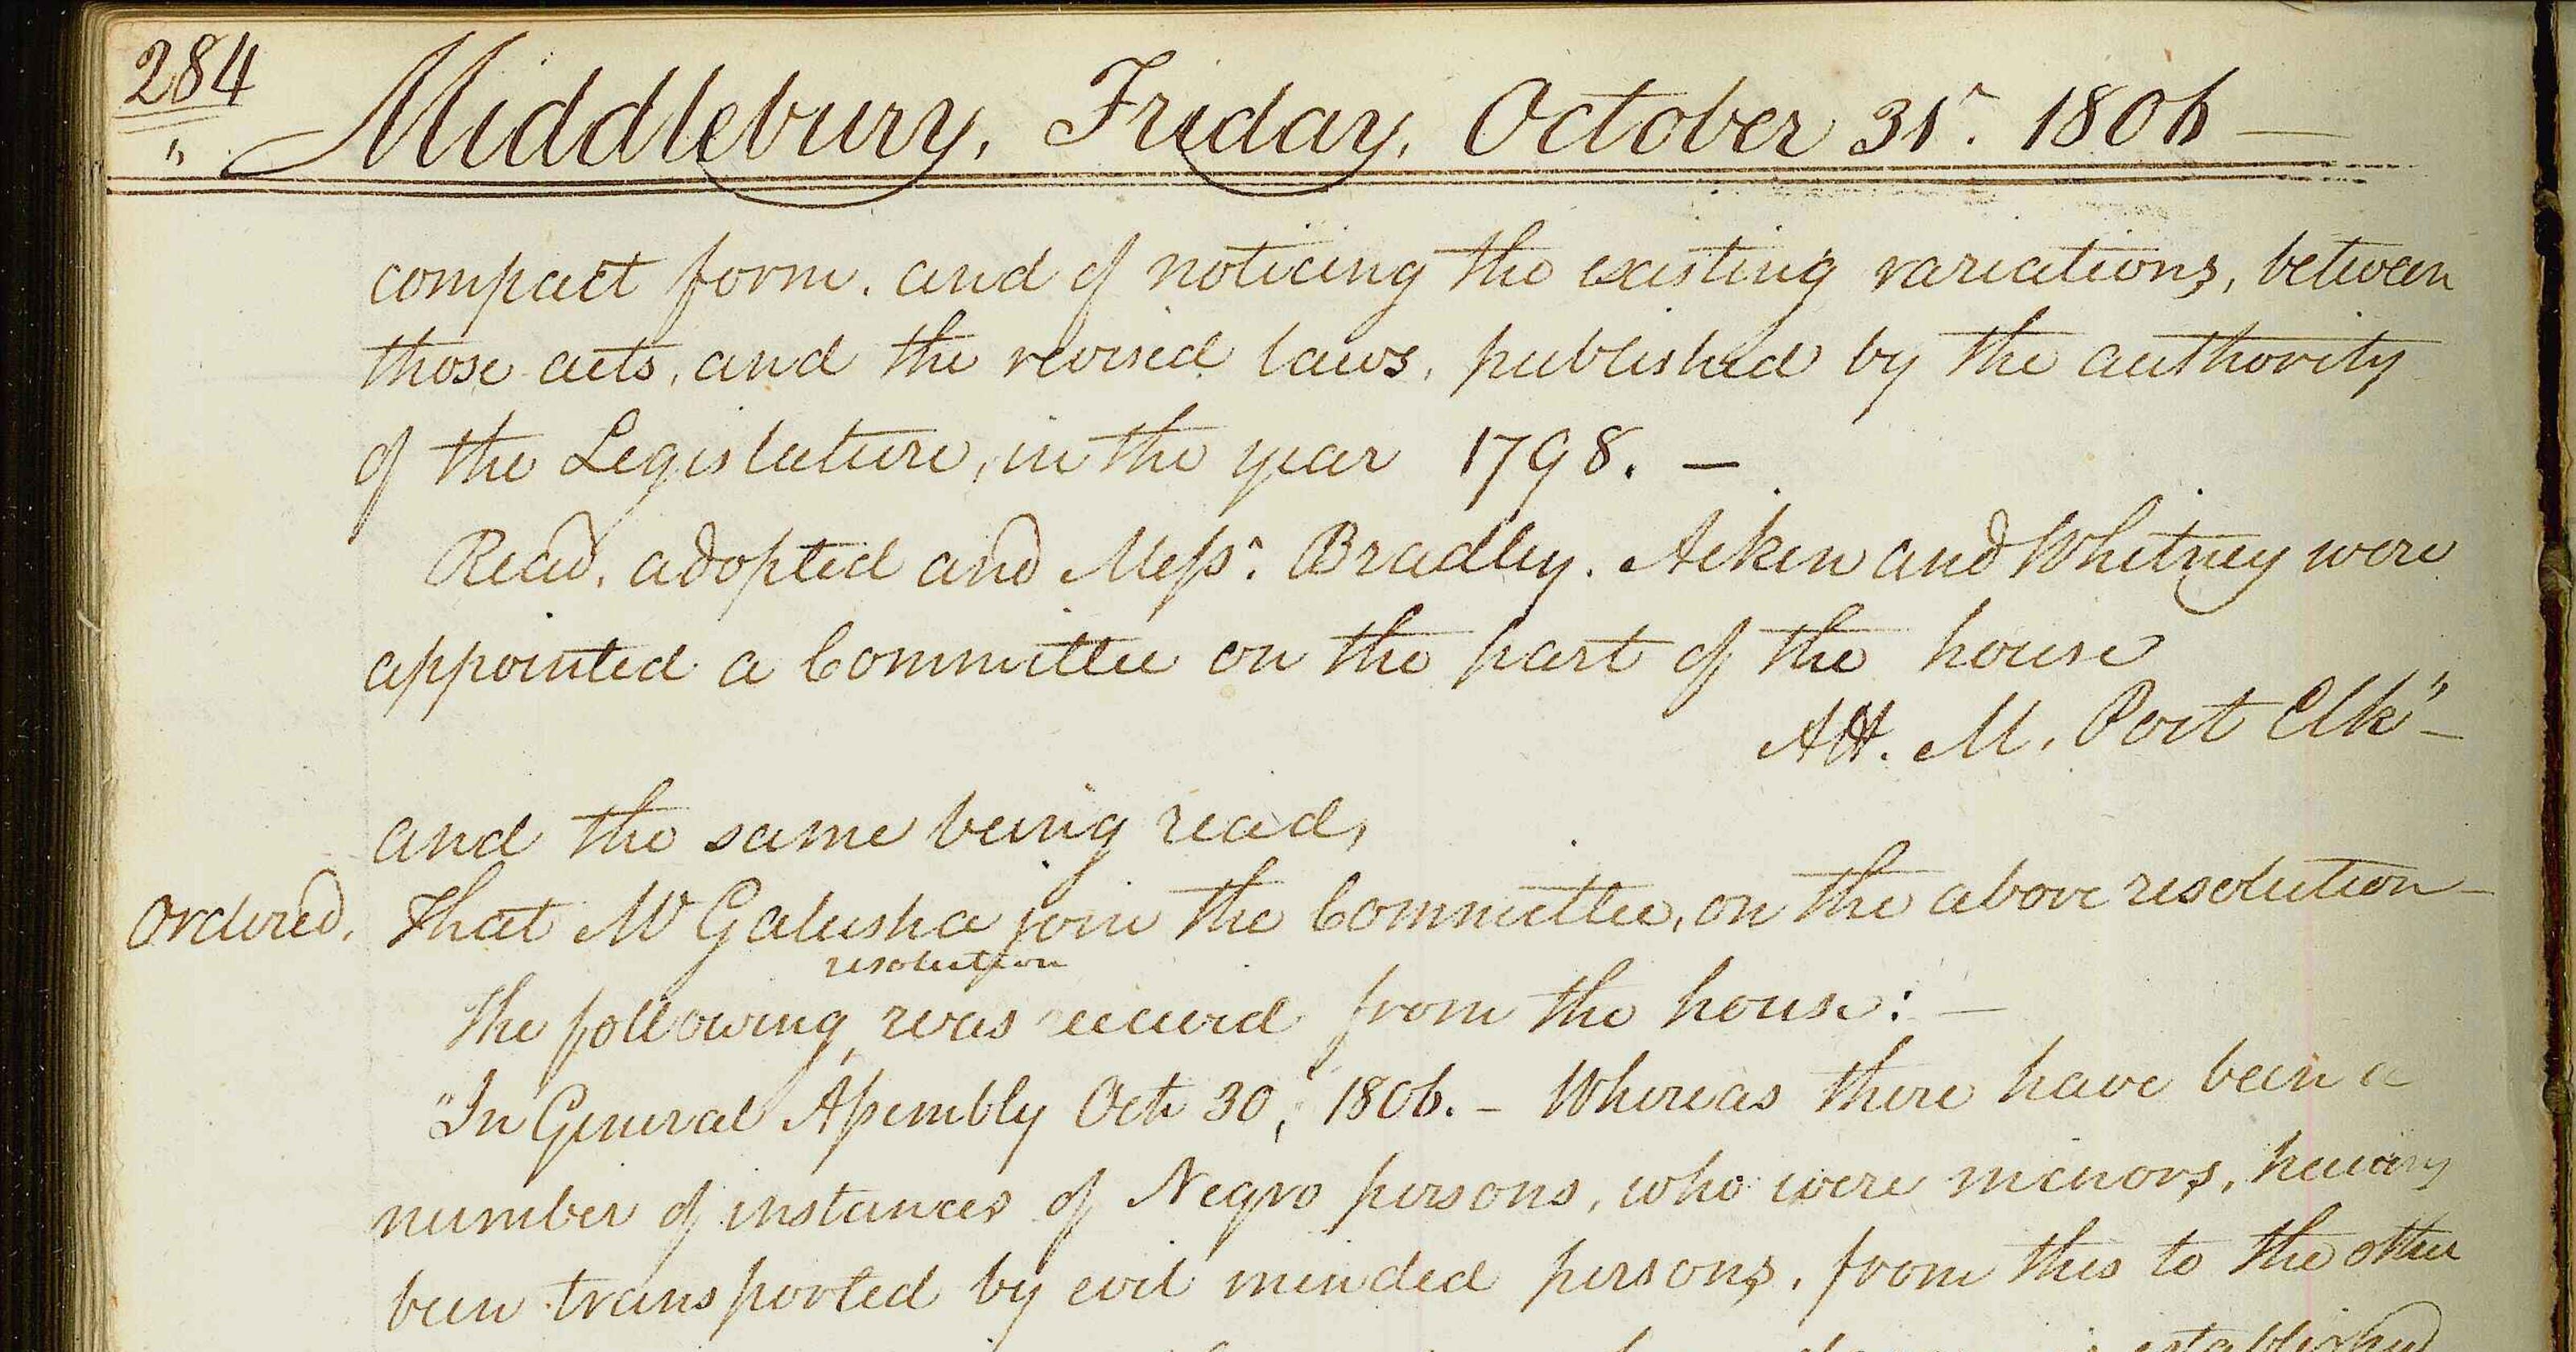 284
Middlebury, Friday, October 31st. 1806 —
compact form. and of noticing the existing variations, between
those acts, and the revised laws, published by the authority
of the Legislature, in the year 1798. —
Read, adopted and Messrs. Bradley. Aiken and Whitney were
appointed a Committee on the part of the house
Att. M. Post Clk" —
and the same being read,
Ordered, That Mr Galusha join the Committee, on the above resolution —
resolution
The following, was received from the house: —
"In General Assembly Oct. 30, 1806. — Whereas there have been a
number of instances of Negro persons, who were minors, having
been transported by evil minded persons, from this to the other
established